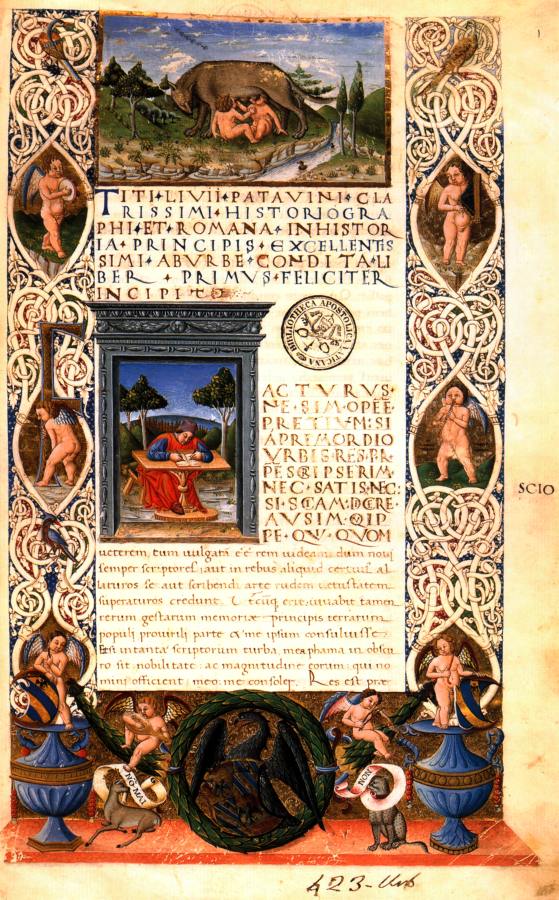 TITI·LIVII·PATAVINI·CLA
RISSIMI·HISTORIOGRA
PHI·ET·ROMANA·INHISTOR
IA·PRINCIPIS·EXCELLENTIS
SIMI·ABVRBE·CONDITA·LI
BER·PRIMVS·FELICITER
INCIPIT
BIBLIOTHECA APOSTOLICA VATICANA
ACTVRVS·
NE·SIM·OPEE·
PRETIVM:SI
APRIMORDIO
VRBIS·RES·PR·
PESCRIPSERIM·
NEC·SATIS·
SI·
AVSIM·QIP
PE·QV·QVOM
ueterem, tum uulgatã eẽ rem uideam dum noui
semper scriptores aut in rebus aliquid certius al
laturos se aut scribendi arte rudem uetustatem
superaturos credunt. erit, iuuabit tamen
rerum gestarum memoriæ principis terrarum
populi prouirili parte & me ipsum consuluisse
Et si intanta scriptorum turba, mea phama in obscu
ro sit, nobilitate ac magnitudine eorum: qui no
mini officient, meo me consoler. Res est præ
SCIO
NON
423-Urb